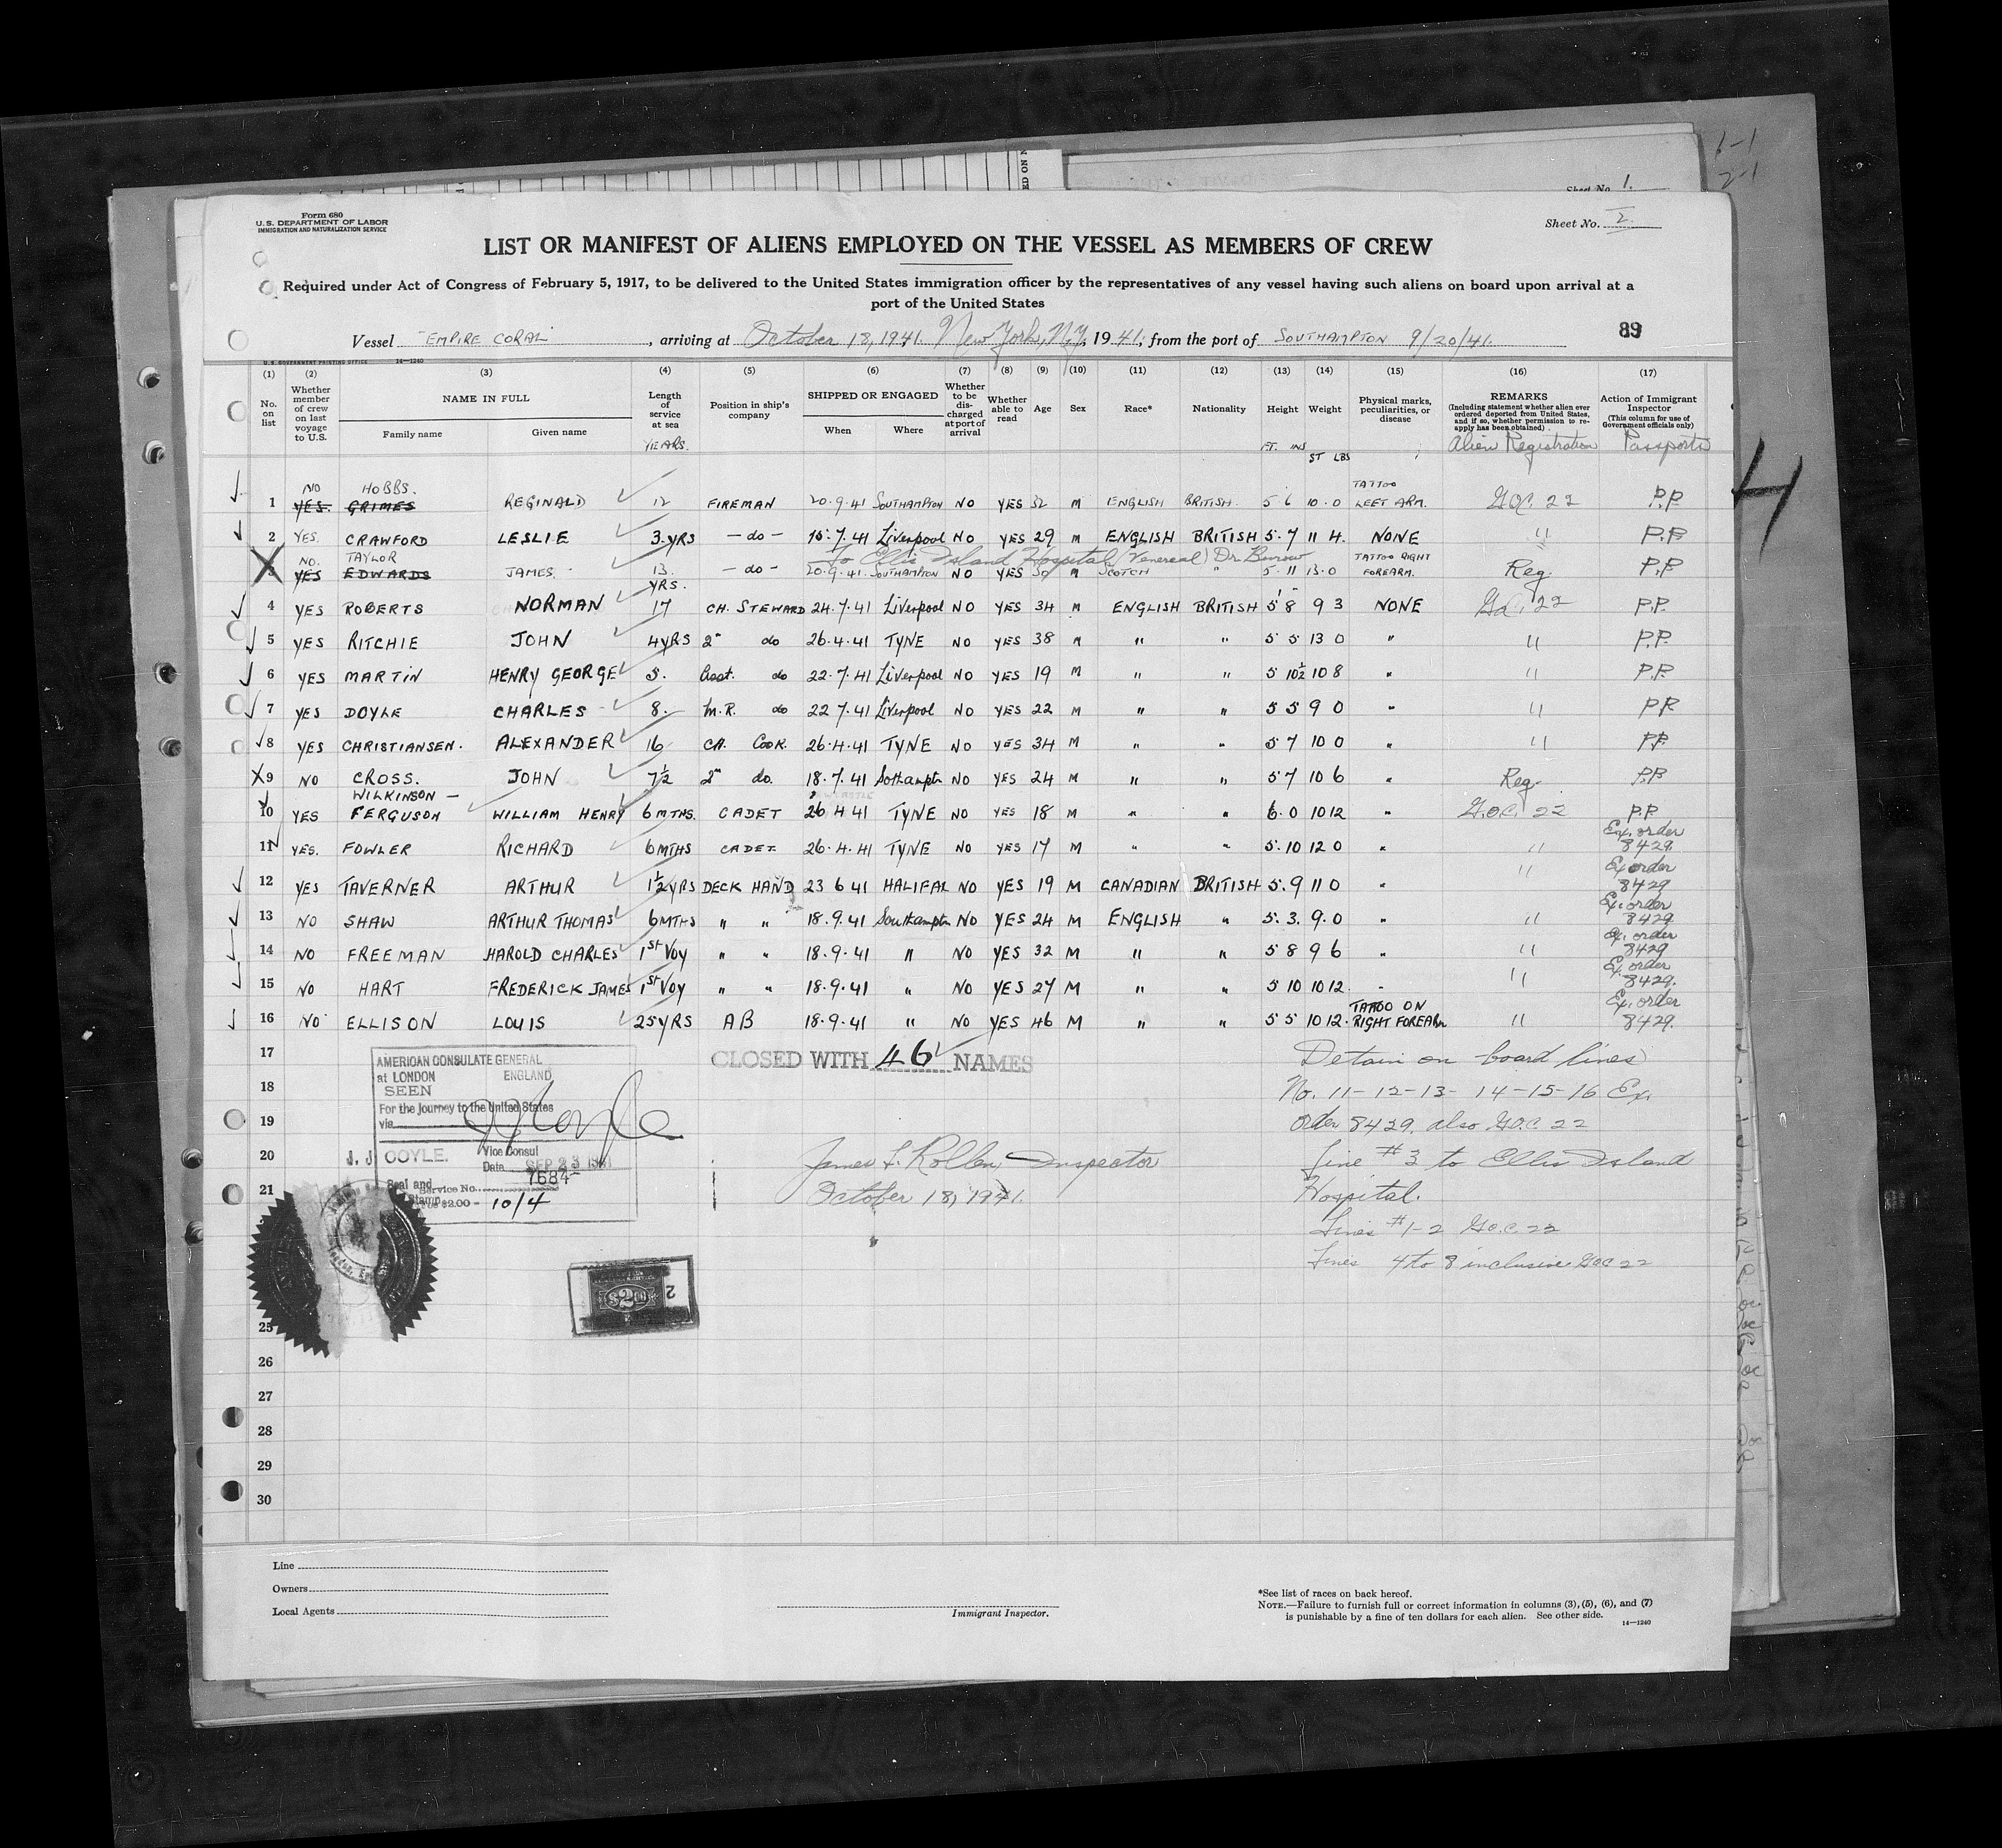 Sheet No. 1.
Form 680
U.S. DEPARTMENT OF LABOR
IMMIGRATION AND NATURALIZATION SERVICE
Sheet No. 2
LIST OR MANIFEST OF ALIENS EMPLOYED ON THE VESSEL AS MEMBERS OF CREW
Required under Act of Congress of February 5, 1917, to be delivered to the United States immigration officer by the representatives of any vessel having such aliens on board upon arrival at a
port of the United States
89
Vessel "EMPIRE CORAL", arriving at October 18, 1941. New York, N.Y., 1941, from the port of SOUTHAMPTON 9/20/41.
U.S. GOVERNMENT PRINTING OFFICE 14—1240
(1) (2) (3) (4) (5) (6) (7) (8) (9) (10) (11) (12) (13) (14) (15) (16) (17)
No. on list
Whether member of crew on last voyage to U.S.
NAME IN FULL
Family name Given name
Length of service at sea
YEARS.
Position in ship's company
SHIPPED OR ENGAGED
When Where
Whether to be discharged at port of arrival
Whether able to read
Age
Sex
Race*
Nationality
Height
FT. INS
Weight
ST LBS
Physical marks, peculiarities, or disease
REMARKS
(Including statement whether alien ever ordered deported from United States, and if so, whether permission to reapply has been obtained)
Alien Registration
Action of Immigrant Inspector
(This column for use of Government officials only)
Passports
4
NO HOBBS. TATTOO
1 YES. GRIMES REGINALD 12 FIREMAN 20.9.41 SOUTHAMPTON NO YES 32 M ENGLISH BRITISH. 5 6 10.0 LEFT ARM. G.O.C. 22 P.P
2 YES. CRAWFORD LESLIE 3.YRS —do— 15.7.41 Liverpool NO YES 29 M ENGLISH BRITISH 5.7 11 4. NONE " P.P
NO. TAYLOR To Ellis Island Hospital (Venereal) Dr. Burrow TATTOO RIGHT
3 YES EDWARDS JAMES. 13. YRS. —do— 20.9.41. SOUTHAMPTON NO YES M SCOTCH " 5.11 13.0 FOREARM. Reg. P.P
4 YES ROBERTS NORMAN 17 CH. STEWARD 24.7.41 Liverpool NO YES 34 M ENGLISH BRITISH 5 8 9 3 NONE G.O.C. 22 P.P.
5 YES RITCHIE JOHN 4YRS 2" do 26.4.41 TYNE NO YES 38 M " " 5 5 13 0 " " P.P.
6 YES MARTIN HENRY GEORGE 5. Asst. do 22.7.41 Liverpool NO YES 19 M " " 5 10½ 10 8 " " P.P.
7 YES DOYLE CHARLES 8. M.R. do 22 7.41 Liverpool NO YES 22 M " " 5 5 9 0 " " P.P.
8 YES CHRISTIANSEN. ALEXANDER 16 CH. COOK. 26.4.41 TYNE NO YES 34 M " " 5 7 10 0 " " P.P.
9 NO CROSS. JOHN 7½ 2" do. 18.7.41 Sothampton NO YES 24 M " " 5 7 10 6 " Reg. P.P
WILKINSON —
10 YES FERGUSON WILLIAM HENRY 6 MTHS. CADET 26 4 41 TYNE NO YES 18 M " " 6.0 10 12 " G.O.C. 22 P.P
11 YES. FOWLER RICHARD 6 MTHS CADET 26.4.41 TYNE NO YES 17 M " " 5.10 12 0 " " Ex. order 8429.
12 YES TAVERNER ARTHUR 1½YRS DECK HAND 23 6 41 HALIFAX NO YES 19 M CANADIAN BRITISH 5.9 11 0 " " Ex. order 8429
13 NO SHAW ARTHUR THOMAS 6MTHS " " 18.9.41 Southampton NO YES 24 M ENGLISH " 5.3. 9.0 " " Ex. order 8429
14 NO FREEMAN HAROLD CHARLES 1st VOY " " 18.9.41 " NO YES 32 M " " 5 8 9 6 " " Ex. order 8429
15 NO HART FREDERICK JAMES 1st VOY " " 18.9.41 " NO YES 27 M " " 5 10 10 12. " " Ex. order 8429.
16 NO ELLISON LOUIS 25YRS AB 18.9.41 " NO YES 46 M " " 5 5 10 12. TATTOO ON RIGHT FOREARM " Ex. order 8429.
17 CLOSED WITH 46 NAMES Detain on board lines
18 No. 11-12-13-14-15-16 Ex.
19 order 8429. also G.O.C. 22
20 James L. Rollen, Inspector Line #3 to Ellis Island
21 October 18, 1941. Hospital.
Lines #1-2 G.O.C. 22
Lines 4 to 8 inclusive GOC 22
AMERICAN CONSULATE GENERAL
at LONDON ENGLAND
SEEN
For the journey to the United States
via
J. J. COYLE. Vice Consul
Date SEP 23 1941
Seal and Stamp
Service No. 7684
$2.00 — 10/4
$2
25
26
27
28
29
30
Line
Owners
Local Agents
Immigrant Inspector.
*See list of races on back hereof.
NOTE.—Failure to furnish full or correct information in columns (3), (5), (6), and (7)
is punishable by a fine of ten dollars for each alien. See other side.
14—1240